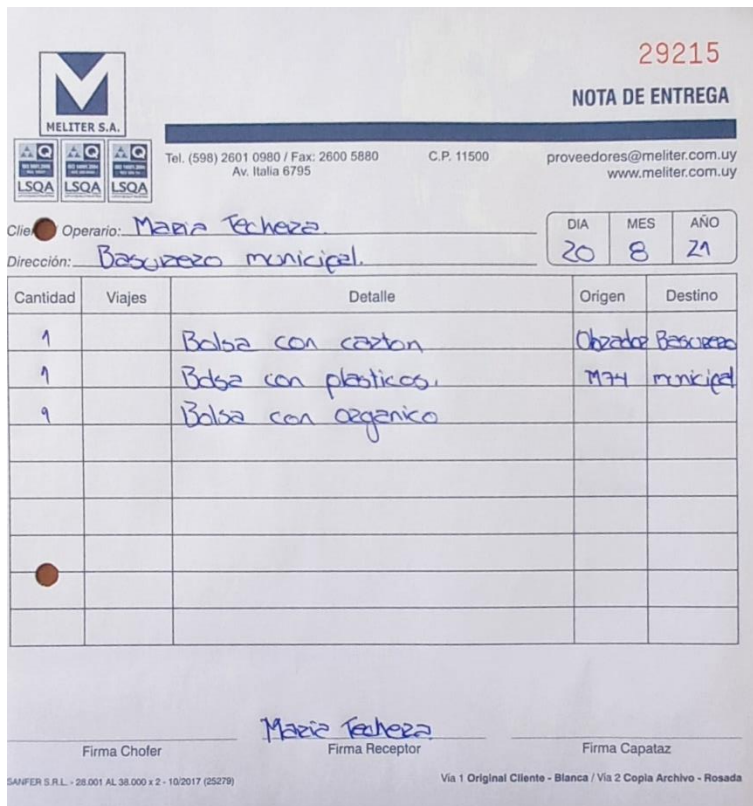 29215
NOTA DE ENTREGA
MELITER S.A.
LSQA LSQA LSQA
Tel. (598) 2601 0980 / Fax: 2600 5880
Av. Italia 6795
C.P. 11500
proveedores@meliter.com.uy
www.meliter.com.uy
Operario: Maria Techera.
DIA MES AÑO
20 8 21
Dirección: Basurero municipal.
Cantidad Viajes Detalle Origen Destino
1 Bolsa con carton Obrador Basurero
1 Bolsa con plasticos. M74 municipal
1 Bolsa con organico
Maria Techera
Firma Chofer Firma Receptor Firma Capataz
SANFER S.R.L. - 28.001 AL 38.000 x 2 - 10/2017 (25279)
Via 1 Original Cliente - Blanca / Via 2 Copia Archivo - Rosada